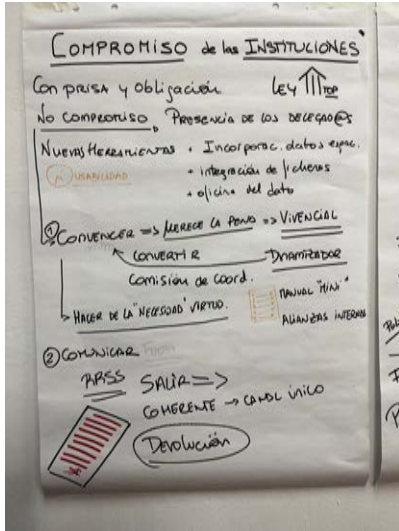 COMPROMISO de las INSTITUCIONES
Con prisa y obligación LEY TOP
No compromiso PRESENCIA DE LOS DELEGAD@S
NUEVAS HERRAMIENTAS • Incorporac. datos espac.
USABILIDAD • integración de ficheros
• oficina del dato
① CONVENCER => MERECE LA PENA => VIVENCIAL
CONVERTIR DINAMIZADOR
Comisión de Coord.
MANUAL "MINI"
> HACER DE LA "NECESIDAD" VIRTUD.
ALIANZAS INTERNAS
② COMUNICAR
RRSS SALIR =>
COHERENTE → CANAL ÚNICO
Devolución